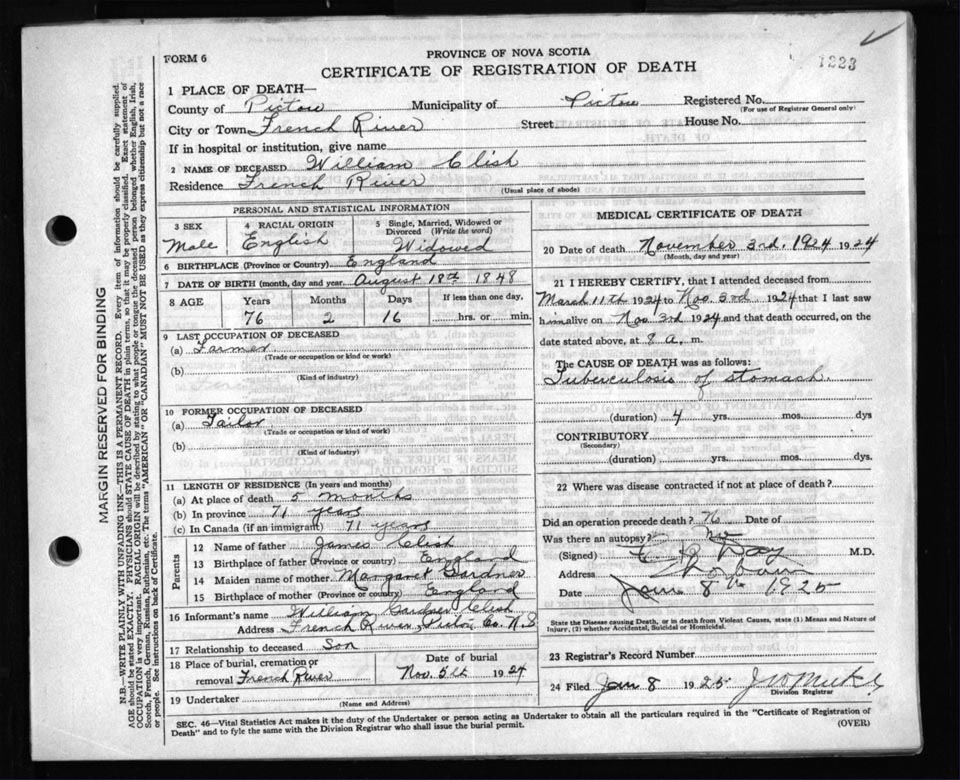 1223
FORM 6
PROVINCE OF NOVA SCOTIA
CERTIFICATE OF REGISTRATION OF DEATH
1 PLACE OF DEATH—
County of Pictou Municipality of Pictou Registered No.
(For use of Registrar General only)
City or Town French River Street House No.
If in hospital or institution, give name
2 NAME OF DECEASED William Clish
Residence French River
(Usual place of abode)
PERSONAL AND STATISTICAL INFORMATION
3 SEX
Male
4 RACIAL ORIGIN
English
5 Single, Married, Widowed or
Divorced (Write the word)
Widowed
6 BIRTHPLACE (Province or Country) England
7 DATE OF BIRTH (month, day and year) August 18th 1848
8 AGE Years Months Days If less than one day,
76 2 16 hrs. or min.
9 LAST OCCUPATION OF DECEASED
(a) Farmer
(Trade or occupation or kind or work)
(b)
(Kind of industry)
10 FORMER OCCUPATION OF DECEASED
(a) Tailor
(Trade or occupation or kind of work)
(b)
(Kind of industry)
11 LENGTH OF RESIDENCE (In years and months)
(a) At place of death 5 months
(b) In province 71 years
(c) In Canada (if an immigrant) 71 years
Parents
12 Name of father James Clish
13 Birthplace of father (Province or country) England
14 Maiden name of mother Margaret Gardner
15 Birthplace of mother (Province or country) England
16 Informant's name William Gardner Clish
Address French River, Pictou Co. N.S
17 Relationship to deceased Son
18 Place of burial, cremation or
removal French River
Date of burial
Nov. 5th 1924
19 Undertaker
(Name and Address)
MEDICAL CERTIFICATE OF DEATH
20 Date of death November 3rd, 1924 1924
(Month, day and year)
21 I HEREBY CERTIFY, that I attended deceased from
March 11th 1924 to Nov. 3rd 1924 that I last saw
him alive on Nov 3rd 1924 and that death occurred, on the
date stated above, at 8 a. m.
The CAUSE OF DEATH was as follows:
Tuberculosis of stomach.
(duration) 4 yrs. mos. dys
CONTRIBUTORY
(Secondary)
(duration) yrs. mos. dys
22 Where was disease contracted if not at place of death?
Did an operation precede death? No Date of
Was there an autopsy? No
(Signed) M.D.
Address Thorburn
Date Jan 8th 1925
State the Disease causing Death, or in death from Violent Causes, state (1) Means and Nature of
Injury, (2) whether Accidental, Suicidal or Homicidal.
23 Registrar's Record Number
24 Filed Jan 8 1925
Division Registrar
SEC. 46—Vital Statistics Act makes it the duty of the Undertaker or person acting as Undertaker to obtain all the particulars required in the "Certificate of Registration of
Death" and to fyle the same with the Division Registrar who shall issue the burial permit.
(OVER)
MARGIN RESERVED FOR BINDING
N.B.—WRITE PLAINLY WITH UNFADING INK—THIS IS A PERMANENT RECORD. Every item of information should be carefully supplied.
AGE should be stated EXACTLY. PHYSICIANS should STATE CAUSE OF DEATH in plain terms, so that it may be properly classified. Exact statement of
OCCUPATION is very important. RACIAL ORIGIN will be described by stating to what people or tongue the deceased person belonged whether English, Irish,
Scotch, French, German, Russian, Ruthenian, etc. The terms "AMERICAN" OR "CANADIAN" MUST NOT BE USED as they express citizenship but not a race
or people. See instructions on back of Certificate.